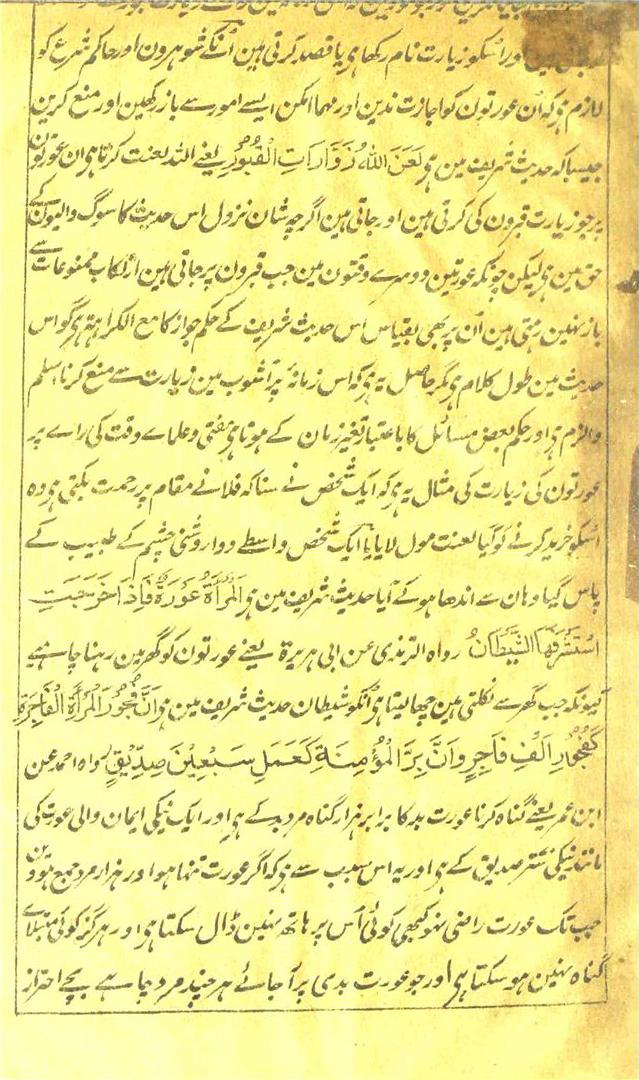 اور اسکو زیارت نام رکھا ہی یا قصد کرتی ہین اُنکے شوہرون اور حاکم شرع کو
لازم ہی کہ اُن عورتون کو اجازت ندین اور مہما امکن ایسے امور سے باز رکھین اور منع کرین
جیسا کہ حدیث شریف مین ہی لَعَنَ اللهُ زَوَّارَاتِ الْقُبُوْرِ یعنے اللہ لعنت کرتا ہی ان عورتون
پر جو زیارت قبرون کی کرتی ہین اور جاتی ہین اگرچہ شان نزول اس حدیث کا سوگ والیون کے
حق مین ہی لیکن چونکہ عورتین دوسرے وقتون مین جب قبرون پر جاتی ہین ارتکاب ممنوعات سے
باز نہین رہتی ہین اُن پر بھی بقیاس اس حدیث شریف کے حکم جواز کا مع الکراہتہ ہی گو اس
حدیث مین طول کلام ہی مگر حاصل یہ ہی کہ اس زمانۂ پر آشوب مین زیارت سے منع کرنا اسلم
و الزم ہی اور حکم بعض مسائل کا باعتبار تغیر زمان کے ہوتا ہی مفتی و علماے وقت کی راے پر
عورتون کی زیارت کی مثال یہ ہی کہ ایک شخص نے سنا کہ فلانے مقام پر رحمت بکتی ہی وہ
اُسکو خرید کرنے کو گیا لعنت مول لایا یا ایک شخص واسطے دوا روشنی چشم کے طبیب کے
پاس گیا وہان سے اندھا ہو کے آیا حدیث شریف مین ہی اَلْمَرْأَةُ عَوْرَةٌ فَاِذَا خَرَجَتِ
اسْتَشْرَفَهَا الشَّيْطَانُ رواہ الترمذی عن ابی ہریرۃ یعنے عورتون کو گھر مین رہنا چاہیے
کیونکہ جب گھر سے نکلتی ہین جھانپتا ہی اُنکو شیطان حدیث شریف مین ہی اِنَّ فُجُوْرَ الْمَرْأَةِ الْفَاجِرَةِ
كَفُجُوْرِ اَلْفِ فَاجِرٍ وَاَنَّ بِرَّ الْمُؤْمِنَةِ كَعَمَلِ سَبْعِيْنَ صِدِّيْقٍ رواہ احمد عن
ابن عمر یعنے گناہ کرنا عورت بد کا برابر ہزار گناہ مرد بد کے ہی اور ایک نیکی ایمان والی عورت کی
مانند نیکی ستر صدیق کے ہی اور یہ اس سبب سے ہی کہ اگر عورت تنہا ہو اور ہزار مرد جمع ہووین
جب تک عورت راضی نہو کبھی کوئی اُس پر ہاتھ نہین ڈال سکتا ہی اور ہرگز کوئی مبتلاے
گناہ نہین ہو سکتا ہی اور جو عورت بدی پر آ جائے ہر چند مرد چاہے بچے احتراز